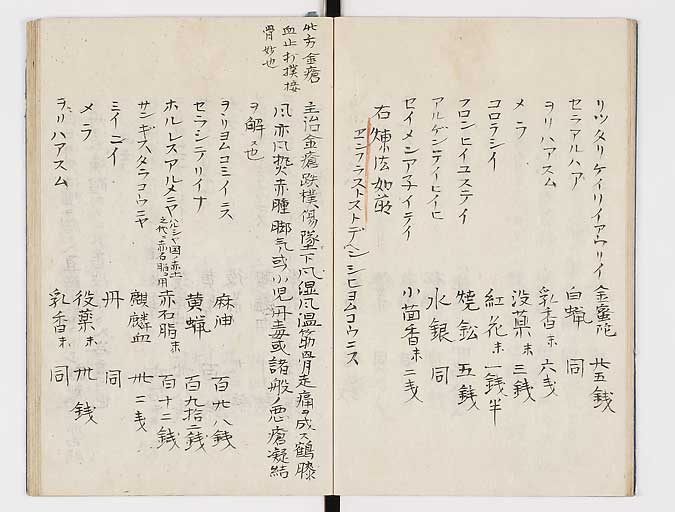 リツタリケイリイアウリイ 金蜜陀 廿五銭
セラアルハア 白蝋 同
ヲリハアスム 乳香末 六戔
メラ 没薬末 三銭
コロラシイ 紅花末 一銭半
フロンヒイユステイ 焼鉛 五銭
アルゲンテイヒイヒ 水銀 同
セイメンアネイテイ 小茴香末 二戔
右煉法如前
エンフラストストデヘンシヒヨムコウニス
主治金瘡跌撲傷墜下風湿風温筋骨走痛ヲ成ス鶴膝
風赤風熱赤腫脚気或小児丹毒或諸般ノ悪瘡凝結
ヲ解ス也
此方金瘡
血止打撲接
骨妙也
ヲリヨムコミイニス 麻油 百九八銭
セラシテリイナ 黄蝋 百九拾二銭
ホルレスアルメニヤ 赤石脂末 百十二銭
サンギスタラコウニヤ 麒麟血 廿二戔
ミイニイ 丹 同
メラ 没薬末 卅銭
ヲリハアスム 乳香末 同